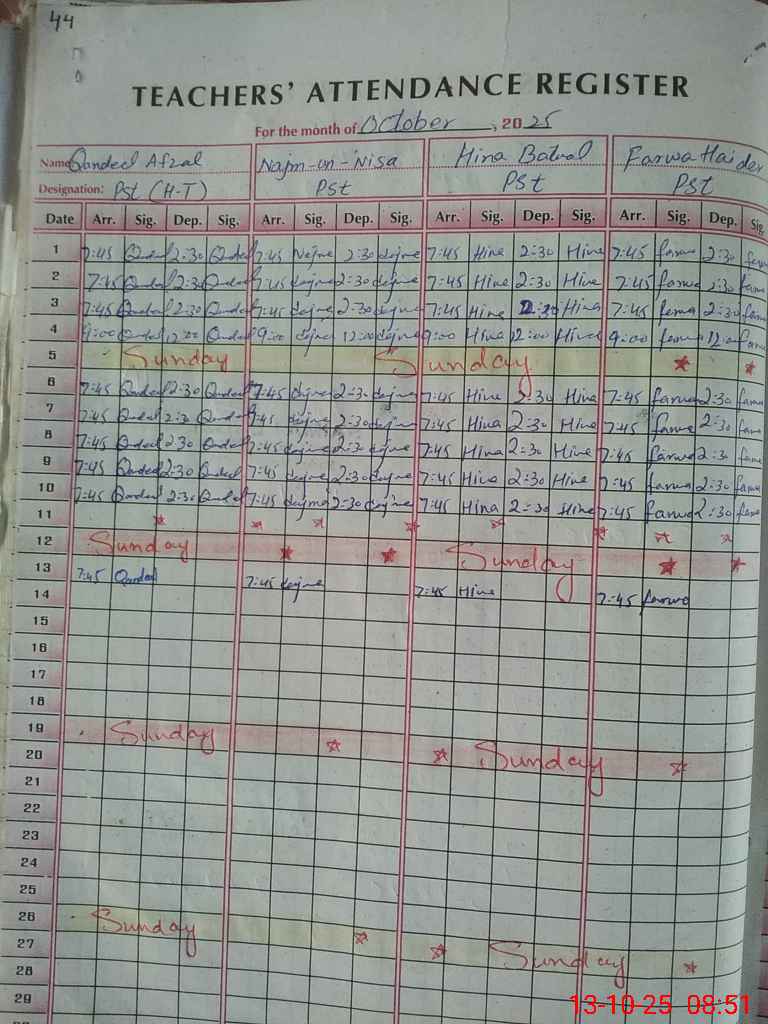 44
TEACHERS' ATTENDANCE REGISTER
For the month of October, 2025
Name Qandeel Afzal Najm-un-Nisa Hina Batool Farwa Haider
Designation: Pst (H-T) Pst Pst Pst
Date Arr. Sig. Dep. Sig. Arr. Sig. Dep. Sig. Arr. Sig. Dep. Sig. Arr. Sig. Dep. Sig.
1 7:45 2:30 7:45 2:30 7:45 Hina 2:30 Hina 7:45 farwa 2:30
2 7:45 2:30 7:45 2:30 7:45 Hina 2:30 Hina 7:45 farwa 2:30
3 7:45 2:30 7:45 2:30 7:45 Hina 2:30 Hina 7:45 farwa 2:30
4 9:00 12:00 9:00 12:00 9:00 Hina 12:00 Hina 9:00 farwa 12:00
5 Sunday Sunday
6 7:45 2:30 7:45 2:30 7:45 Hina 2:30 Hina 7:45 farwa 2:30
7 7:45 2:30 7:45 2:30 7:45 Hina 2:30 Hina 7:45 farwa 2:30
8 7:45 2:30 7:45 2:30 7:45 Hina 2:30 Hina 7:45 farwa 2:30
9 7:45 Qandeel 2:30 Qandeel 7:45 2:30 7:45 Hina 2:30 Hina 7:45 farwa 2:30
10 7:45 Qandeel 2:30 Qandeel 7:45 2:30 7:45 Hina 2:30 Hina 7:45 farwa 2:30
11
12 Sunday Sunday
13 7:45 Qandeel 7:45 7:45 Hina 7:45 farwa
14
15
16
17
18
19 Sunday Sunday
20
21
22
23
24
25
26 Sunday Sunday
27
28
29
13-10-25 08:51